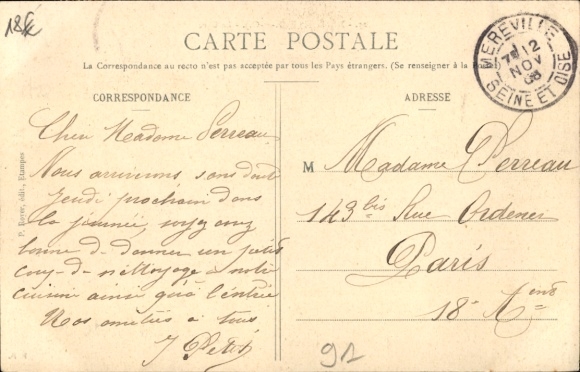 18€
CARTE POSTALE
La Correspondance au recto n'est pas acceptée par tous les Pays étrangers. (Se renseigner à la Poste)
MEREVILLE
7 12
NOV
08
SEINE ET OISE
CORRESPONDANCE
ADRESSE
P. Royer, édit., Etampes
Chère Madame Perreau
Nous arriverons sans doute
Jeudi prochain dans
la journée, soyez assez
bonne de donner un petit
coup de nettoyage à notre
cuisine ainsi qu'à l'entrée
Nos amitiés à tous
J Petit
M Madame Perreau
143 bis Rue Ordener
Paris
18e Arr
91